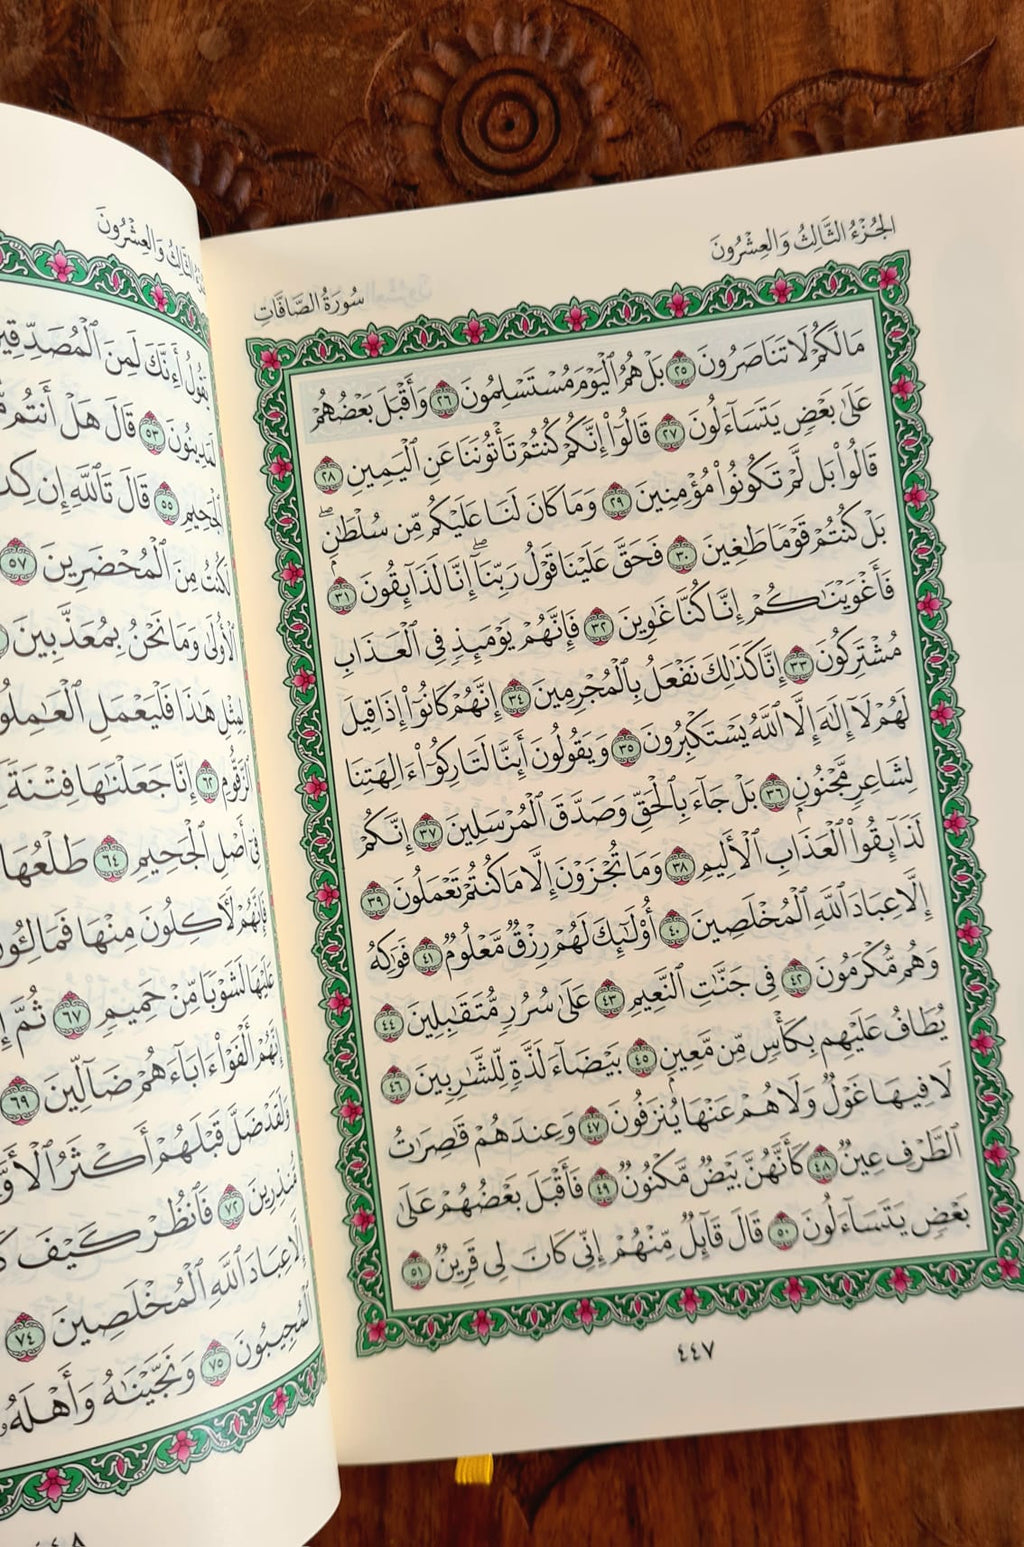 الجُزْءُ الثَّالِثُ وَالعِشْرُونَ
سُورَةُ الصَّافَّاتِ
مَا لَكُمْ لَا تَنَاصَرُونَ ٢٥ بَلْ هُمُ ٱلْيَوْمَ مُسْتَسْلِمُونَ ٢٦ وَأَقْبَلَ بَعْضُهُمْ
عَلَىٰ بَعْضٍ يَتَسَآءَلُونَ ٢٧ قَالُوٓا۟ إِنَّكُمْ كُنتُمْ تَأْتُونَنَا عَنِ ٱلْيَمِينِ ٢٨
قَالُوا۟ بَل لَّمْ تَكُونُوا۟ مُؤْمِنِينَ ٢٩ وَمَا كَانَ لَنَا عَلَيْكُم مِّن سُلْطَٰنٍۭ ۖ
بَلْ كُنتُمْ قَوْمًا طَٰغِينَ ٣٠ فَحَقَّ عَلَيْنَا قَوْلُ رَبِّنَآ ۖ إِنَّا لَذَآئِقُونَ ٣١
فَأَغْوَيْنَٰكُمْ إِنَّا كُنَّا غَٰوِينَ ٣٢ فَإِنَّهُمْ يَوْمَئِذٍ فِى ٱلْعَذَابِ
مُشْتَرِكُونَ ٣٣ إِنَّا كَذَٰلِكَ نَفْعَلُ بِٱلْمُجْرِمِينَ ٣٤ إِنَّهُمْ كَانُوٓا۟ إِذَا قِيلَ
لَهُمْ لَآ إِلَٰهَ إِلَّا ٱللَّهُ يَسْتَكْبِرُونَ ٣٥ وَيَقُولُونَ أَئِنَّا لَتَارِكُوٓا۟ ءَالِهَتِنَا
لِشَاعِرٍ مَّجْنُونٍۭ ٣٦ بَلْ جَآءَ بِٱلْحَقِّ وَصَدَّقَ ٱلْمُرْسَلِينَ ٣٧ إِنَّكُمْ
لَذَآئِقُوا۟ ٱلْعَذَابِ ٱلْأَلِيمِ ٣٨ وَمَا تُجْزَوْنَ إِلَّا مَا كُنتُمْ تَعْمَلُونَ ٣٩
إِلَّا عِبَادَ ٱللَّهِ ٱلْمُخْلَصِينَ ٤٠ أُو۟لَٰٓئِكَ لَهُمْ رِزْقٌ مَّعْلُومٌ ٤١ فَوَٰكِهُ
وَهُم مُّكْرَمُونَ ٤٢ فِى جَنَّٰتِ ٱلنَّعِيمِ ٤٣ عَلَىٰ سُرُرٍ مُّتَقَٰبِلِينَ ٤٤
يُطَافُ عَلَيْهِم بِكَأْسٍ مِّن مَّعِينٍۭ ٤٥ بَيْضَآءَ لَذَّةٍ لِّلشَّٰرِبِينَ ٤٦
لَا فِيهَا غَوْلٌ وَلَا هُمْ عَنْهَا يُنزَفُونَ ٤٧ وَعِندَهُمْ قَٰصِرَٰتُ
ٱلطَّرْفِ عِينٌ ٤٨ كَأَنَّهُنَّ بَيْضٌ مَّكْنُونٌ ٤٩ فَأَقْبَلَ بَعْضُهُمْ عَلَىٰ
بَعْضٍ يَتَسَآءَلُونَ ٥٠ قَالَ قَآئِلٌ مِّنْهُمْ إِنِّى كَانَ لِى قَرِينٌ ٥١
٤٤٧
الثَّالِثُ وَالعِشْرُونَ
يَقُولُ أَءِنَّكَ لَمِنَ ٱلْمُصَدِّقِينَ
لَمَدِينُونَ ٥٣ قَالَ هَلْ أَنتُم
ٱلْجَحِيمِ ٥٥ قَالَ تَٱللَّهِ إِن كِدتَّ
لَكُنتُ مِنَ ٱلْمُحْضَرِينَ ٥٧
ٱلْأُولَىٰ وَمَا نَحْنُ بِمُعَذَّبِينَ
لِمِثْلِ هَٰذَا فَلْيَعْمَلِ ٱلْعَٰمِلُونَ
ٱلزَّقُّومِ ٦٢ إِنَّا جَعَلْنَٰهَا فِتْنَةً
فِىٓ أَصْلِ ٱلْجَحِيمِ ٦٤ طَلْعُهَا
فَإِنَّهُمْ لَءَاكِلُونَ مِنْهَا فَمَالِـُٔونَ
عَلَيْهَا لَشَوْبًا مِّنْ حَمِيمٍ ٦٧ ثُمَّ
إِنَّهُمْ أَلْفَوْا۟ ءَابَآءَهُمْ ضَآلِّينَ ٦٩
وَلَقَدْ ضَلَّ قَبْلَهُمْ أَكْثَرُ ٱلْأَوَّلِينَ
مُّنذِرِينَ ٧٢ فَٱنظُرْ كَيْفَ
إِلَّا عِبَادَ ٱللَّهِ ٱلْمُخْلَصِينَ ٧٤
ٱلْمُجِيبُونَ ٧٥ وَنَجَّيْنَٰهُ وَأَهْلَهُۥ
٤٤٨